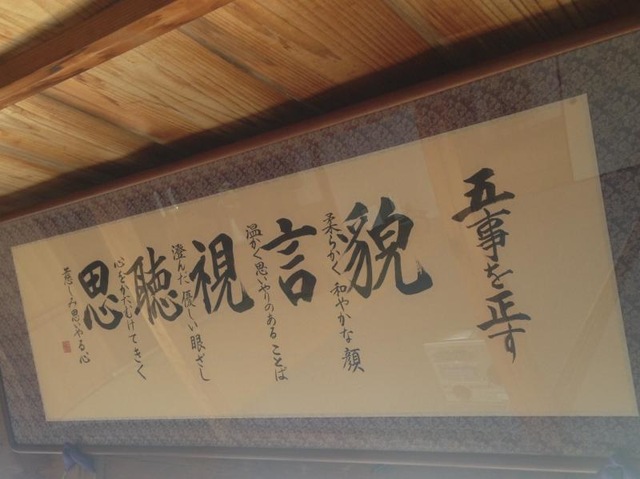 五事を正す
貌
柔らかく和やかな顔
言
温かく思いやりのあることば
視
澄んだ優しい眼ざし
聴
心をかたむけてきく
思
慈しみ思いやる心